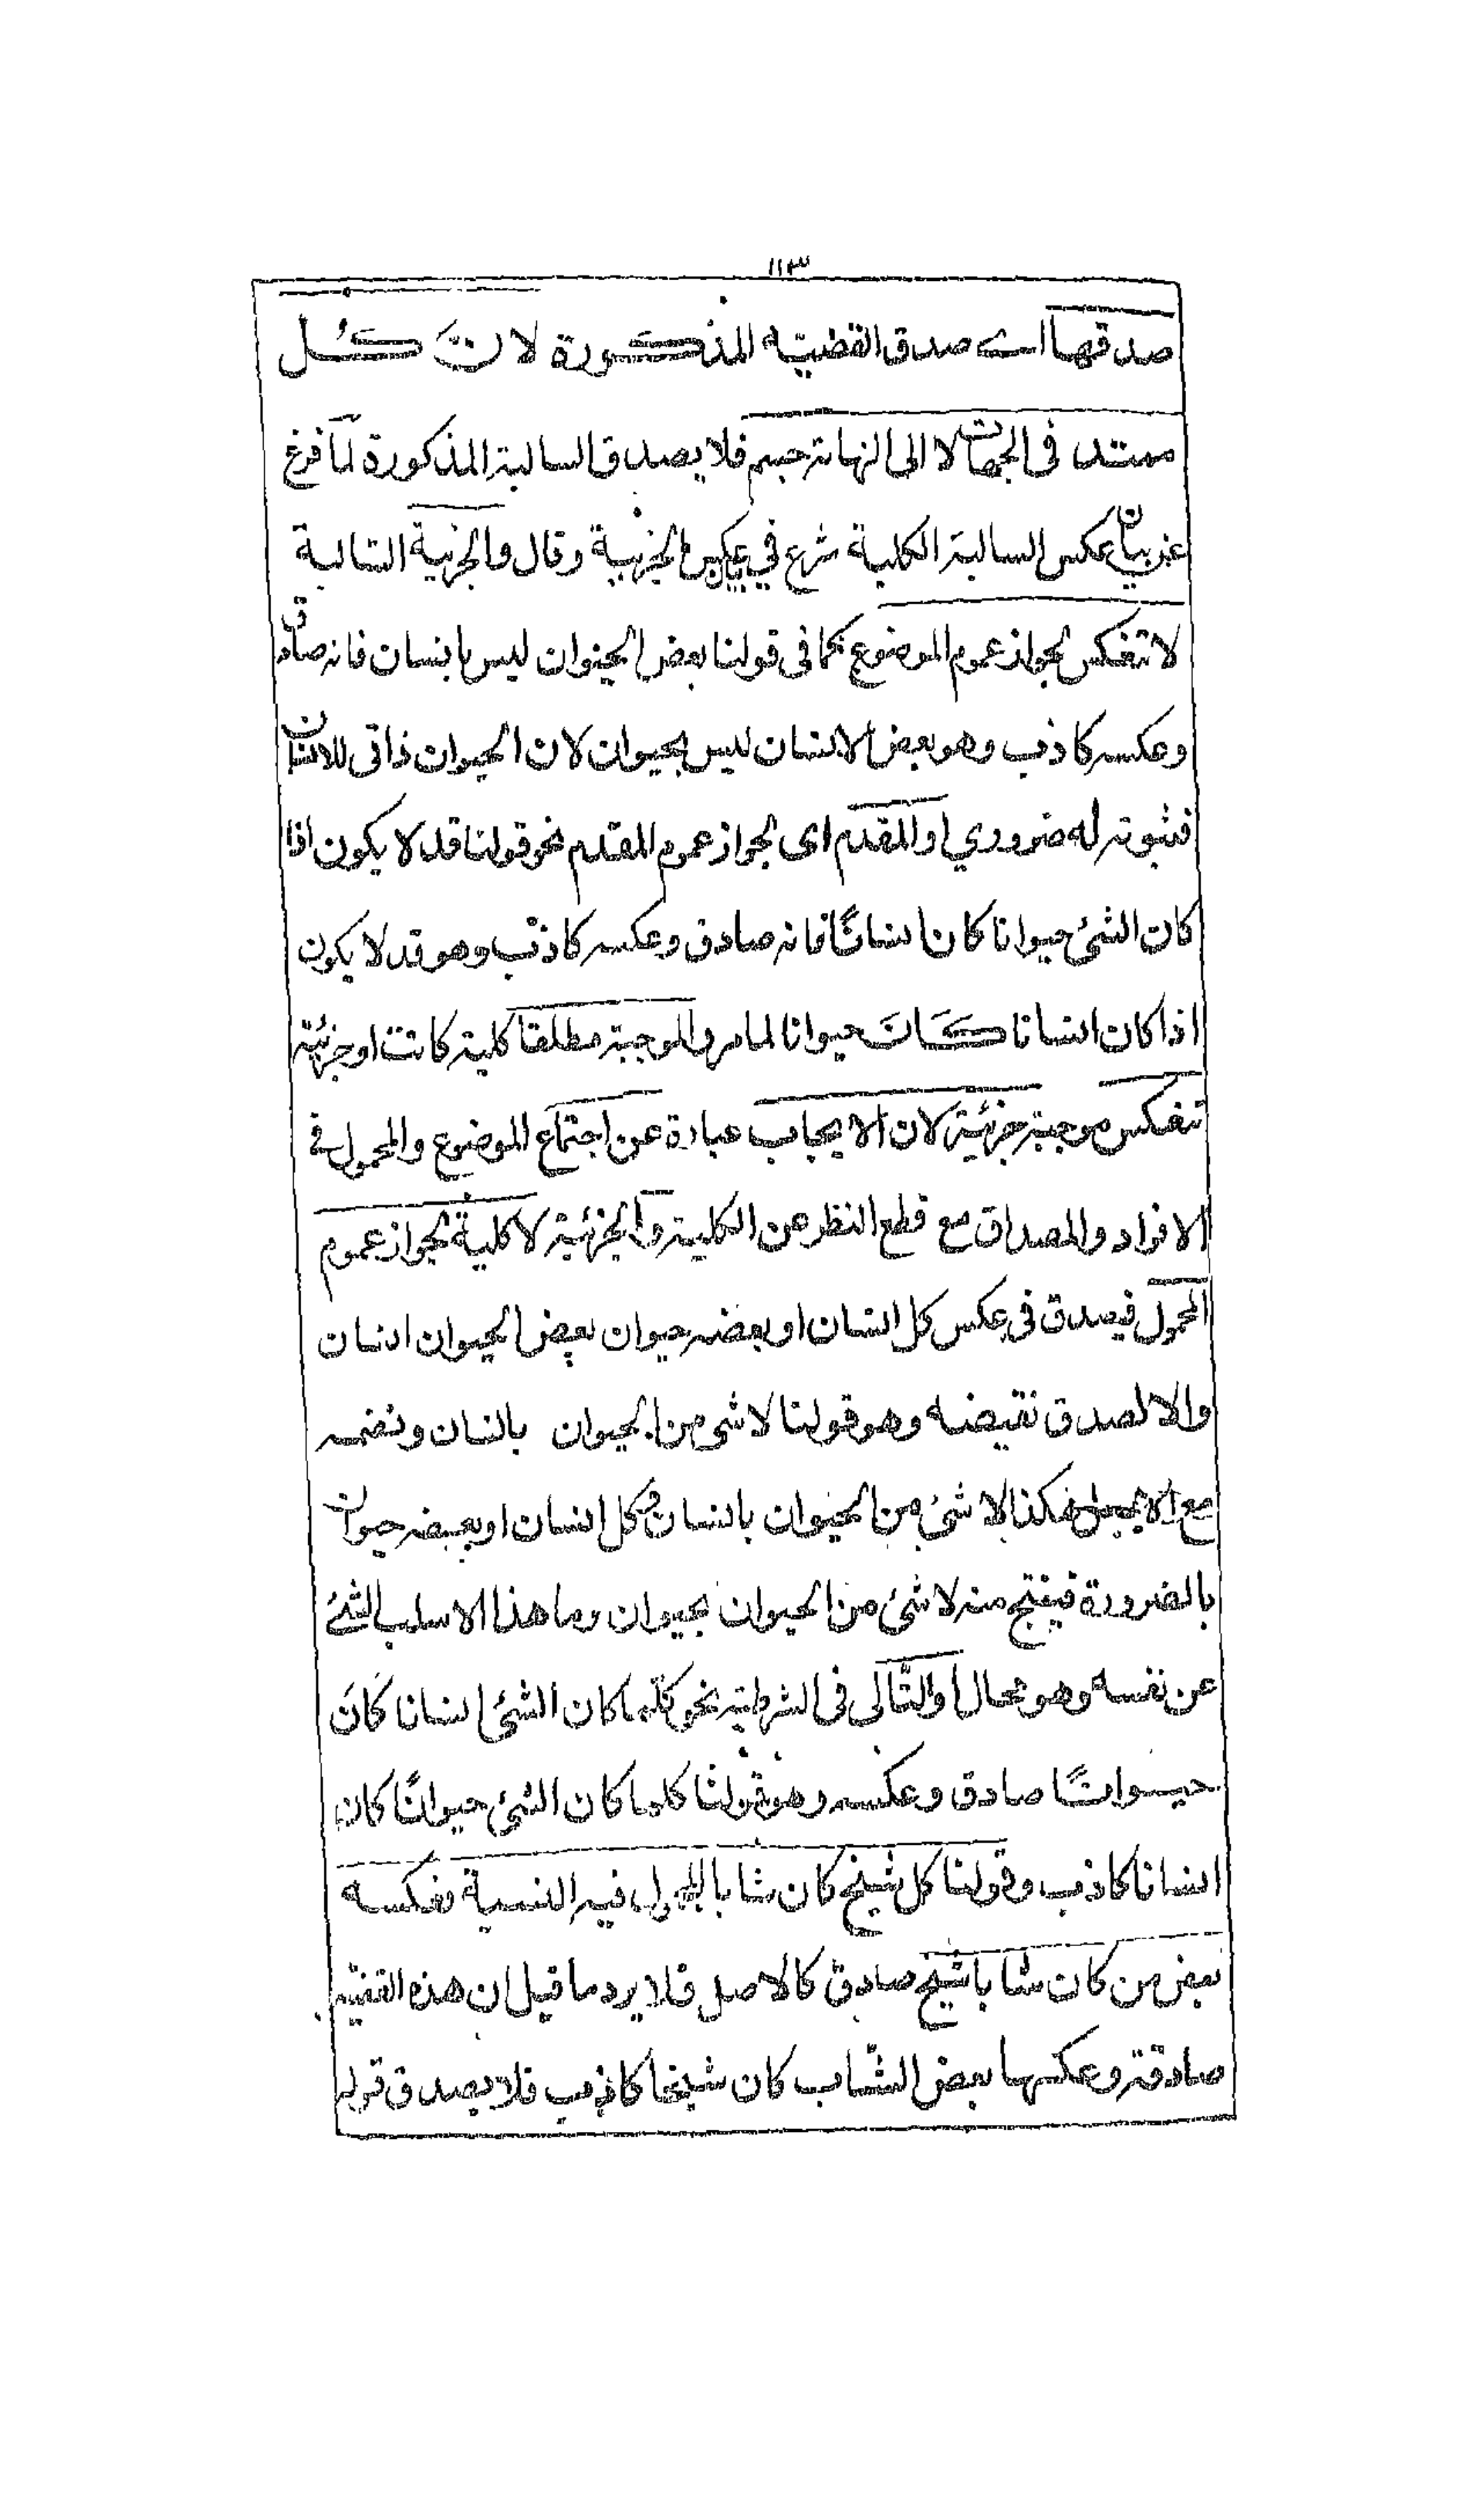 ١١٣
صدقها اے صدق القضیته المذكورة لانَّ كُل
ممتد فی الجهات لا الی النهایة جسم فلا یصدق السالبة المذكورة لمّا فرغ
عن بیان عكس السالبة الكلیة شرع فی بیان عكس الجزئیة وقال والجزئیة السالبة
لا تنعكس لجواز عموم الموضوع كما فی قولنا بعض الحیوان لیس بانسان فانه صادق
وعكسه كاذب وهو بعض الانسان لیس بحیوان لان الحیوان ذاتی للانسان
فثبوته له ضروري او المقدم ای لجواز عموم المقدم نحو قولنا قد لا یكون اذا
كان الشیٔ حیوانا كان انسانًا فانه صادق وعكسه كاذب وهو قد لا یكون
اذا كان انسانا كَانَ حیوانا لما مر والموجبة مطلقا كلیة كانت او جزئیة
تنعكس موجبة جزئیة لان الایجاب عبارة عن اجتماع الموضوع والمحمول فی
الافراد والمصداق مع قطع النظر عن الكلیة والجزئیة لا كلیة لجواز عموم
المحمول فیصدق فی عكس كل انسان او بعضه حیوان بعض الحیوان انسان
والا لصدق نقیضه وهو قولنا لا شی من الحیوان بانسان ونضمه
مع الاصل هكذا لا شیٔ من الحیوان بانسان وكل انسان او بعضه حیوان
بالضرورة فینتج منه لا شیٔ من الحیوان بحیوان وما هذا الا سلب الشیٔ
عن نفسه وهو محال او التّالی فی الشرطیة نحو كلّما كان الشیٔ انسانا كانَ
حیوانًا صادق وعكسه وهو قولنا كلما كان الشیٔ حیوانًا كان
انسانا كاذب وقولنا كل شیخ كان شابا المحمول فیه النسبة فعكسه
بعض من كان شابا شیخ صادق كالاصل فلا یرد ما قیل ان هذه القضیة
صادقة وعكسها بعض الشّاب كان شیخا كاذب فلا یصدق قوله